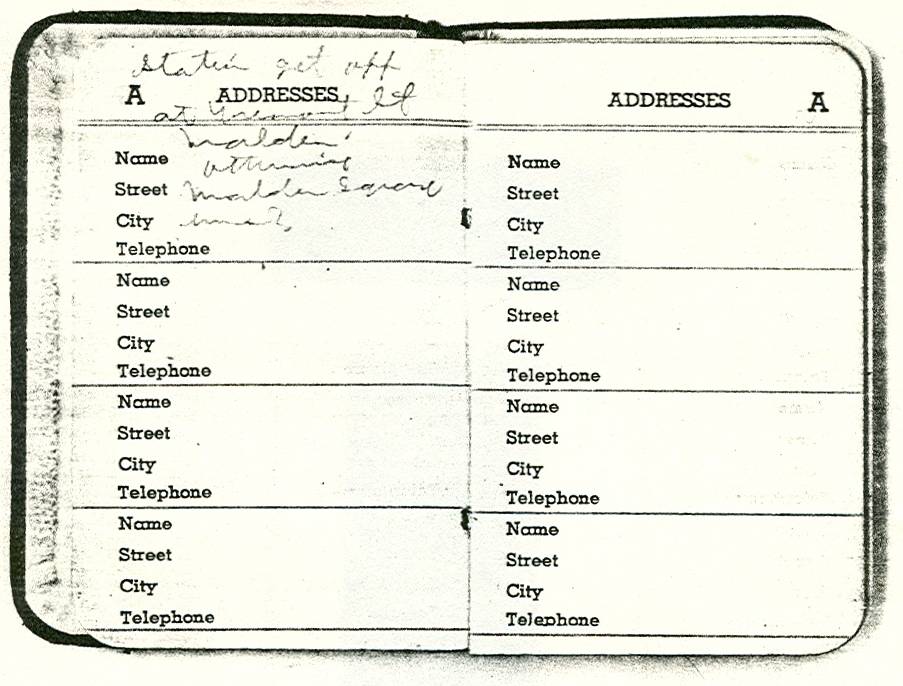 Station get off
A ADDRESSES
at St
Malden
Name
Street Malden Square
City
Telephone
Name
Street
City
Telephone
Name
Street
City
Telephone
Name
Street
City
Telephone
ADDRESSES A
Name
Street
City
Telephone
Name
Street
City
Telephone
Name
Street
City
Telephone
Name
Street
City
Telephone